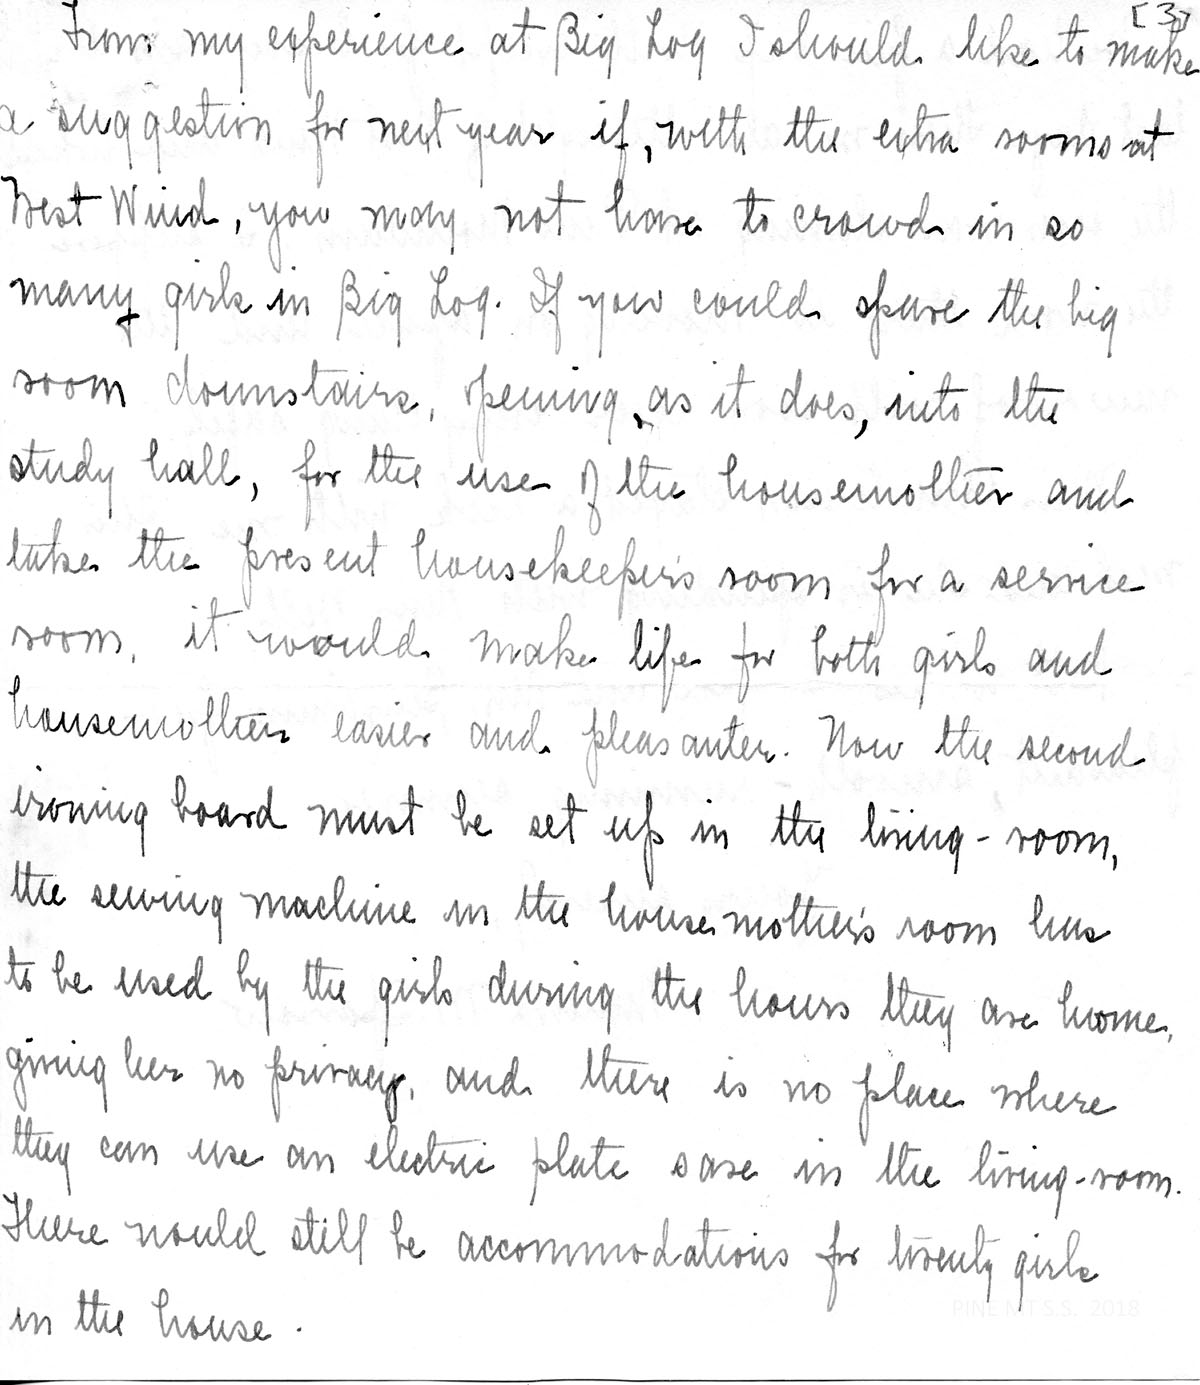 [3]
From my experience at Big Log I should like to make
a suggestion for next year if, with the extra rooms at
West Wind, you may not have to crowd in so
many girls in Big Log. If you could spare the big
room downstairs, opening, as it does, into the
study hall, for the use of the housemother and
take the present housekeeper's room for a service
room, it would make life for both girls and
housemother easier and pleasanter. Now the second
ironing board must be set up in the living-room,
the sewing machine in the housemother's room has
to be used by the girls during the hours they are home,
giving her no privacy, and there is no place where
they can use an electric plate save in the living-room.
There would still be accommodations for twenty girls
in the house.
PINE MT S.S. 2018